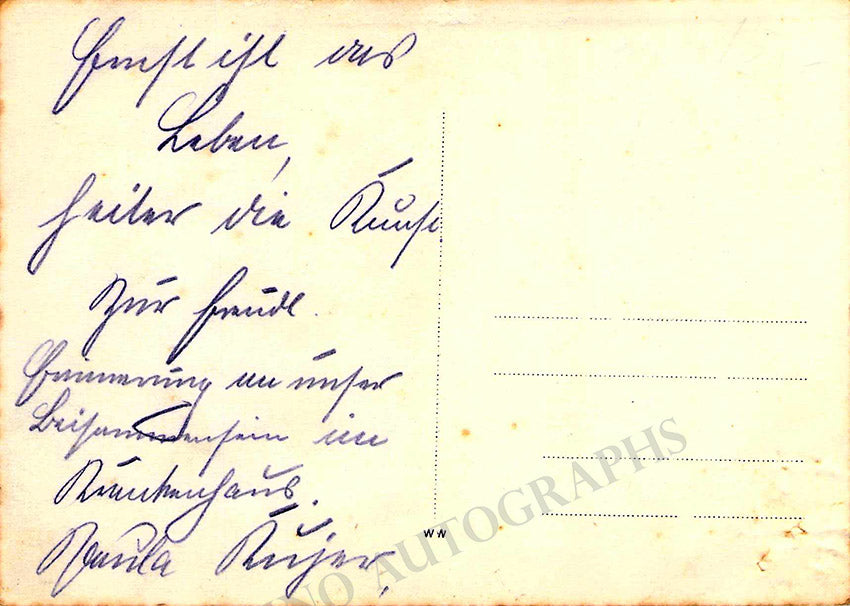 Ernst ist das
Leben,
heiter die Kunst
Zur freudl.
Erinnerung an unser
Beisammensein im
Krankenhaus.
Paula
WW
INO AUTOGRAPHS